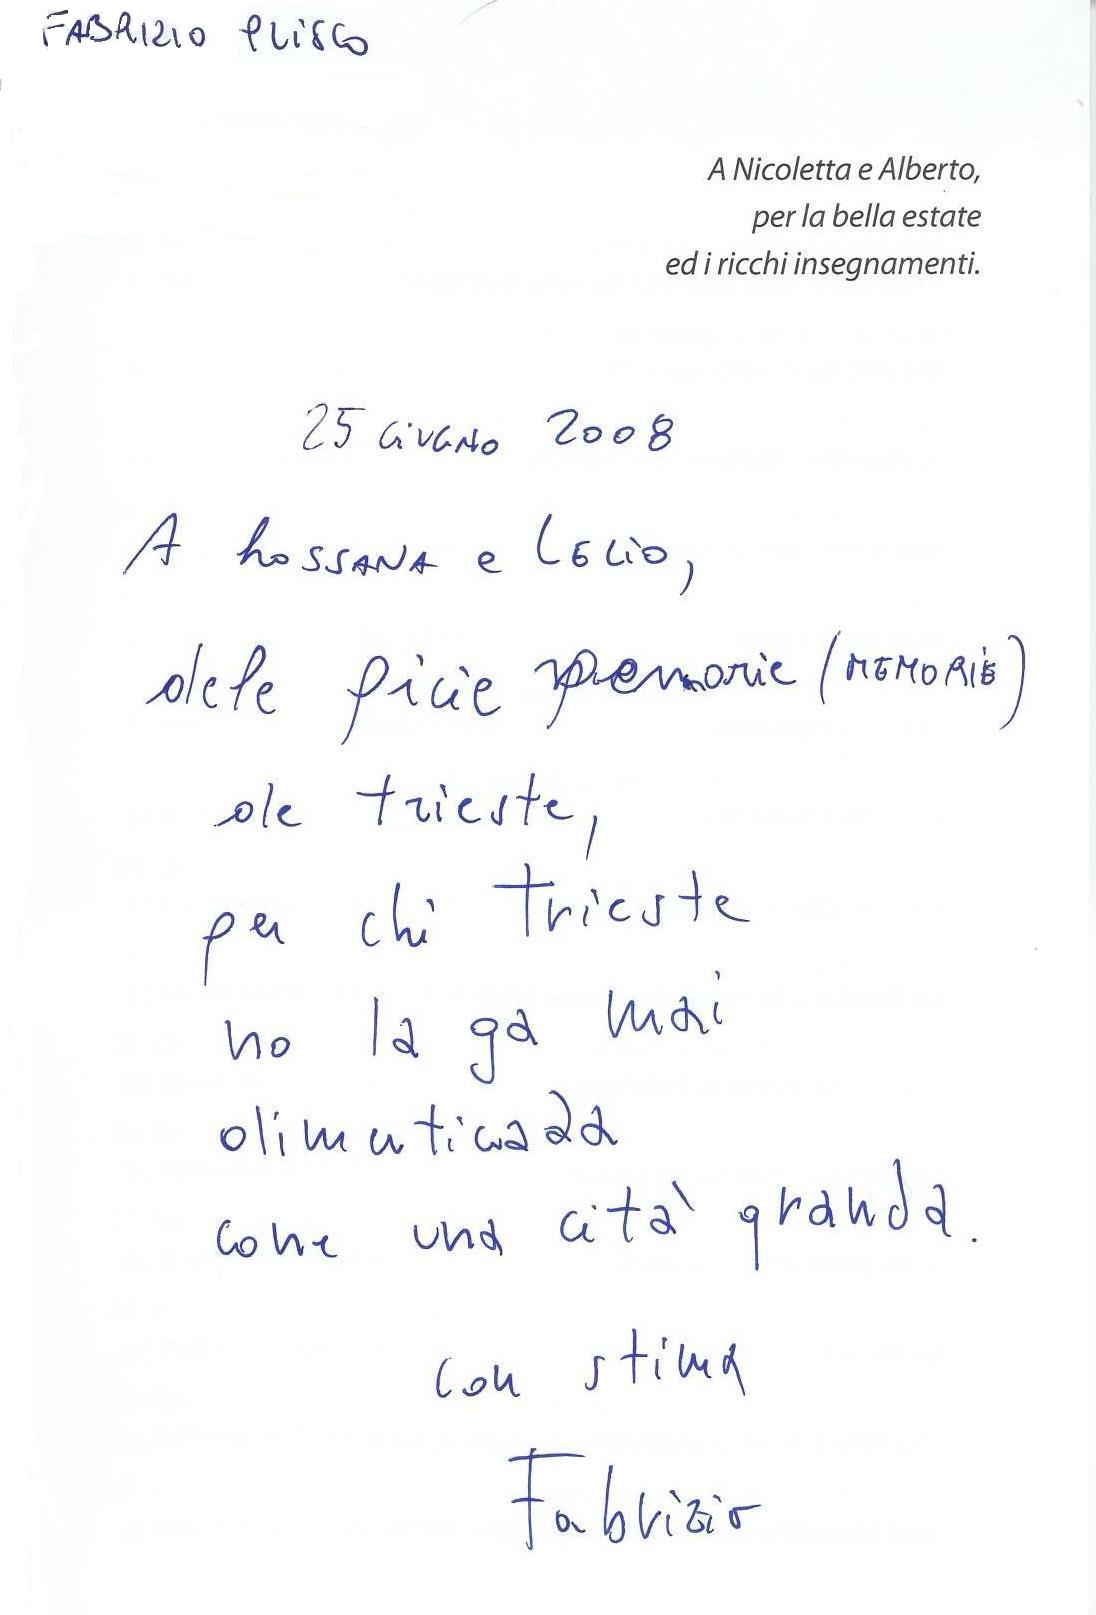 FABRIZIO PLISCO
A Nicoletta e Alberto,
per la bella estate
ed i ricchi insegnamenti.
25 GIUGNO 2008
A ROSSANA e LELIO,
dele picie memorie (MEMORIE)
de trieste,
per chi Trieste
no la ga mai
dimenticada
come una cità granda.
con stima
Fabrizio